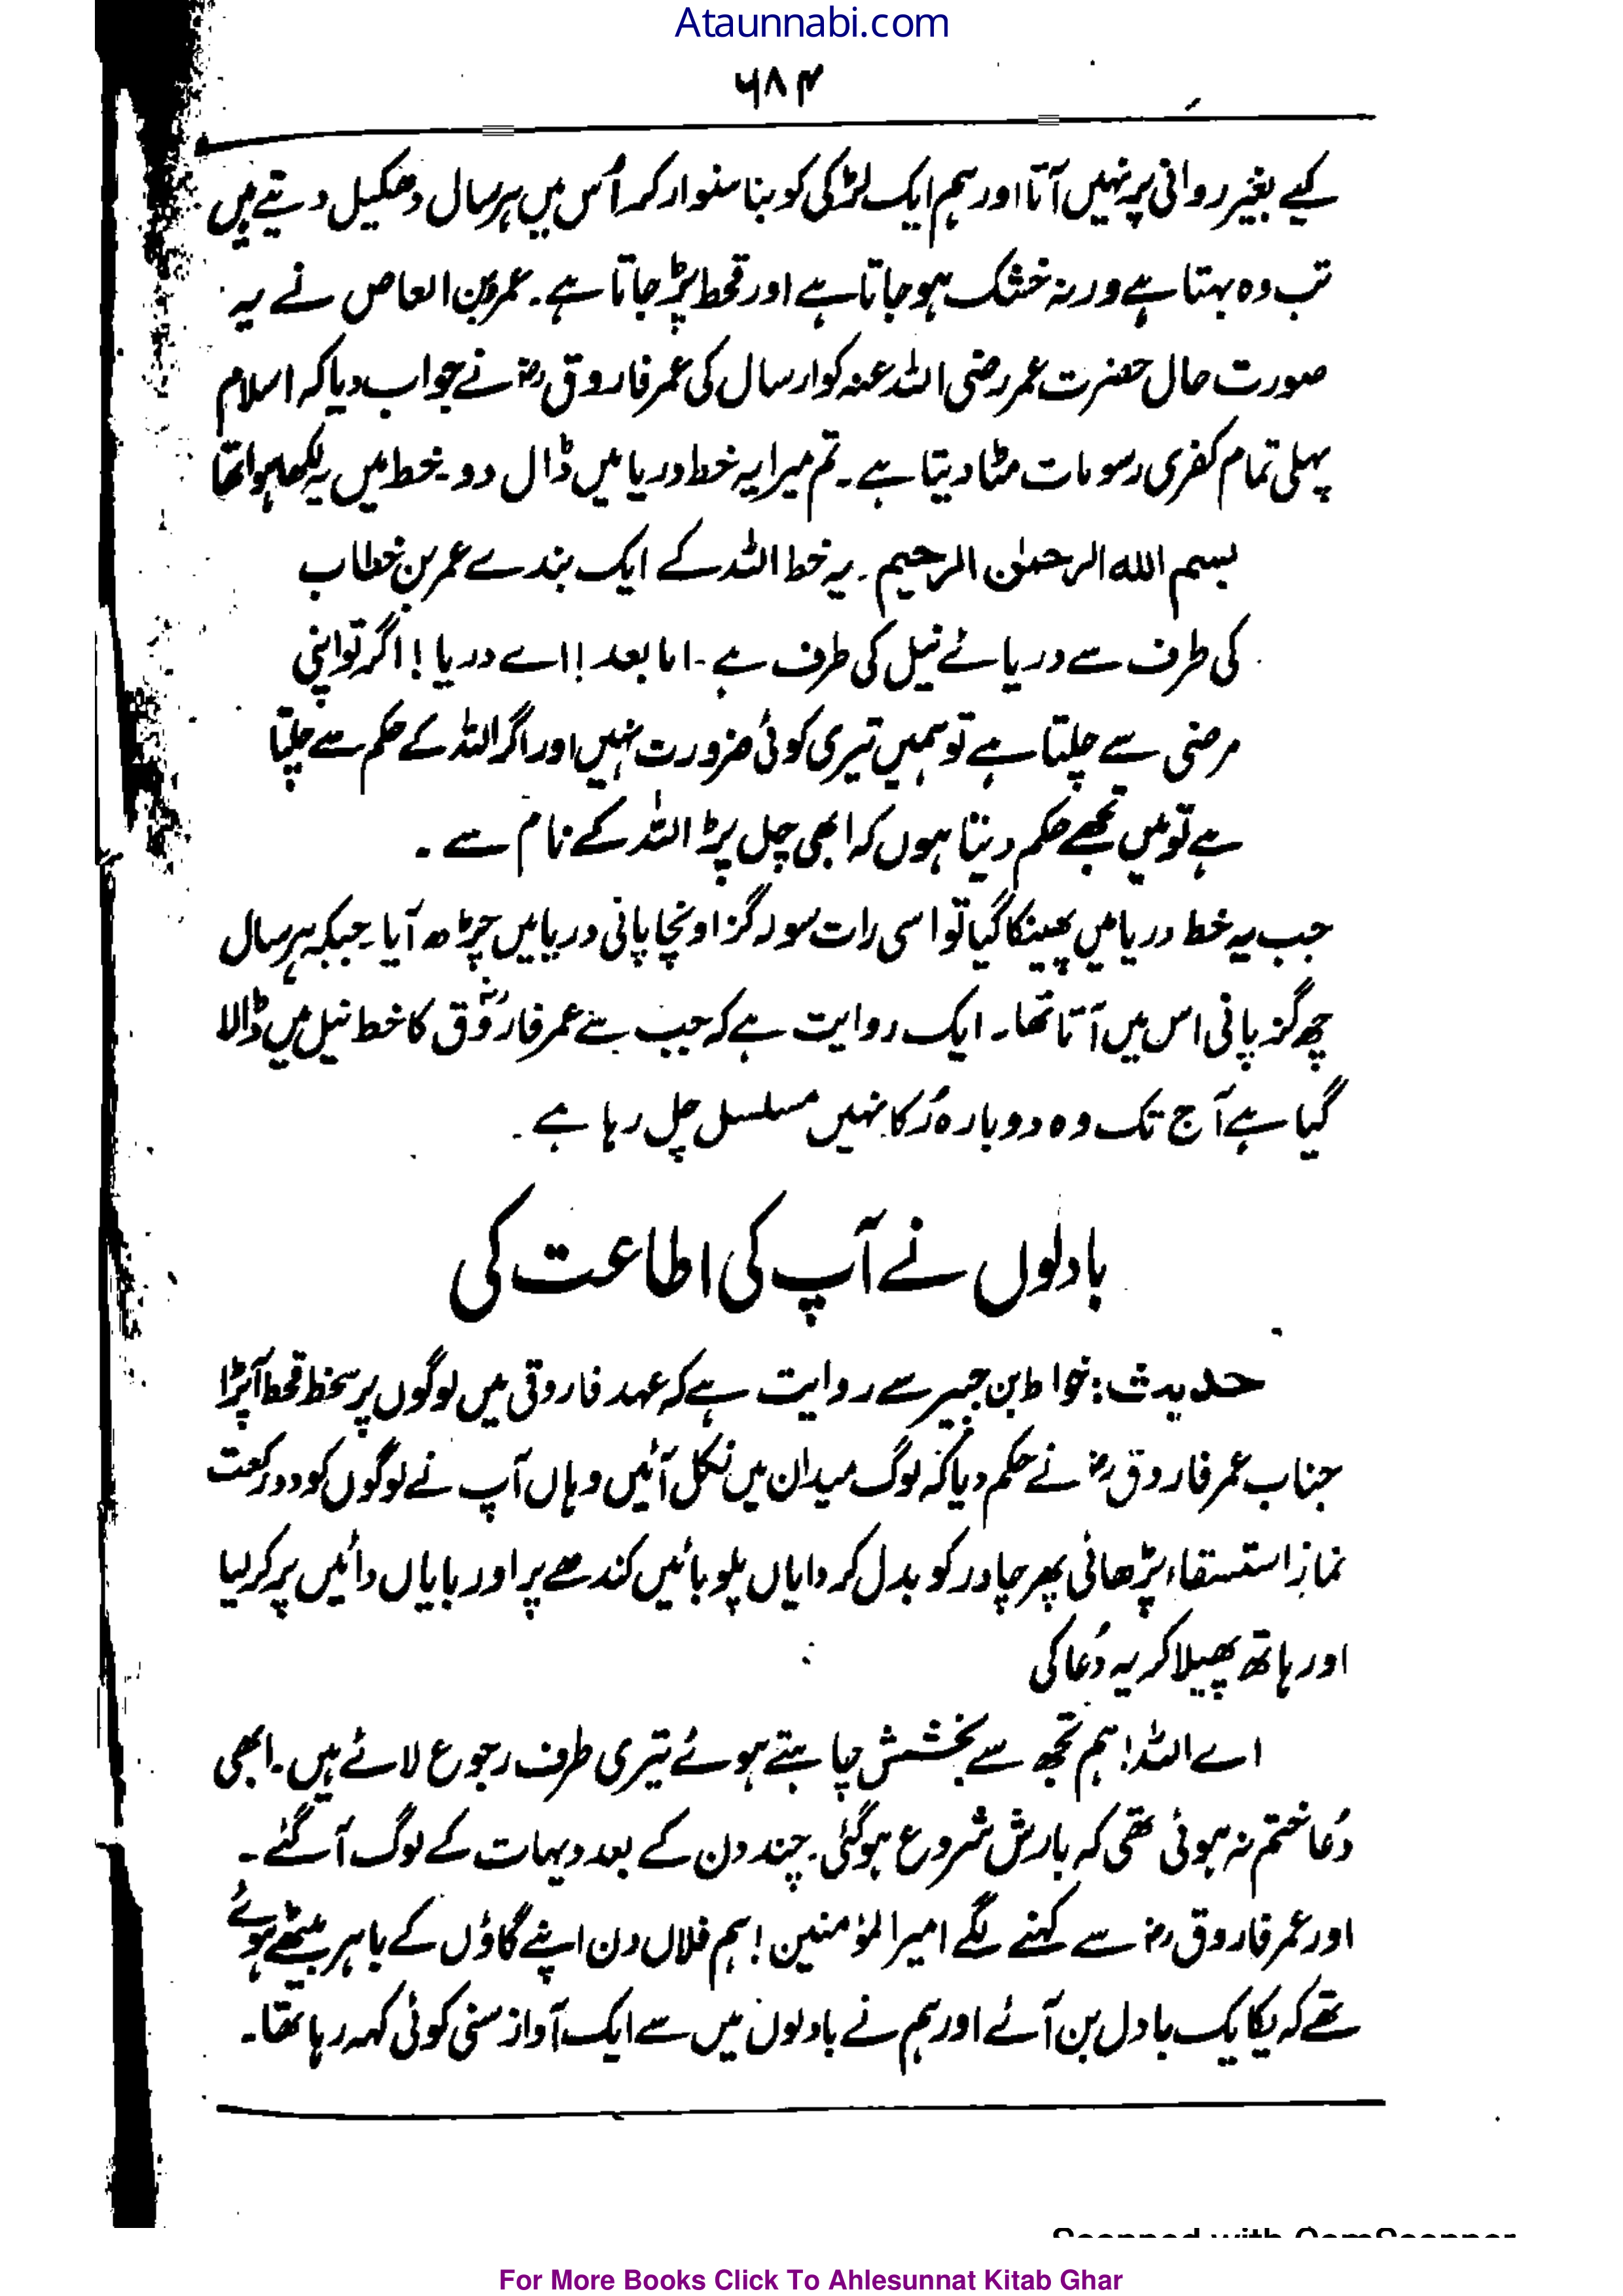 Ataunnabi.com
۶۸۴
کیے بغیر روانی پر نہیں آتا اور ہم ایک لڑکی کو بنا سنوار کر اُس میں ہر سال دھکیل دیتے ہیں
تب وہ بہتا ہے ورنہ خشک ہو جاتا ہے اور قحط پڑ جاتا ہے۔ عمرو بن العاص نے یہ
صورت حال حضرت عمر رضی اللہ عنہ کو ارسال کی عمر فاروق رضؓ نے جواب دیا کہ اسلام
پہلی تمام کفری رسومات مٹا دیتا ہے۔ تم میرا یہ خط دریا میں ڈال دو۔ خط میں یہ لکھا ہوا تھا
بسم اللہ الرحمٰن الرحیم۔ یہ خط اللہ کے ایک بندے عمر بن خطاب
کی طرف سے دریائے نیل کی طرف ہے۔ اما بعد! اے دریا! اگر تو اپنی
مرضی سے چلتا ہے تو ہمیں تیری کوئی ضرورت نہیں اور اگر اللہ کے حکم سے چلتا
ہے تو میں تجھے حکم دیتا ہوں کہ ابھی چل پڑ اللہ کے نام سے۔
جب یہ خط دریا میں پھینکا گیا تو اسی رات سولہ گز اونچا پانی دریا میں چڑھ آیا۔ جبکہ ہر سال
چھ گز پانی اس میں آتا تھا۔ ایک روایت ہے کہ جب سے عمر فاروقؓ کا خط نیل میں ڈالا
گیا ہے آج تک وہ دوبارہ رُکا نہیں مسلسل چل رہا ہے۔
بادلوں نے آپ کی اطاعت کی
حدیث: خواط بن جبیر سے روایت ہے کہ عہد فاروقی میں لوگوں پر سخط قحط آپڑا
جناب عمر فاروق رضؓ نے حکم دیا کہ لوگ میدان میں نکل آئیں وہاں آپ نے لوگوں کو دو رکعت
نمازِ استسقاء پڑھائی پھر چادر کو بدل کر دایاں پلو بائیں کندھے پر اور بایاں دائیں پر کر لیا
اور ہاتھ پھیلا کر یہ دُعا کی
اے اللہ! ہم تجھ سے بخشش چاہتے ہوئے تیری طرف رجوع لائے ہیں۔ ابھی
دُعا ختم نہ ہوئی تھی کہ بارش شروع ہوگئی۔ چند دن کے بعد دیہات کے لوگ آگئے۔
اور عمر فاروق رضؓ سے کہنے لگے امیر المؤمنین! ہم فلاں دن اپنے گاؤں کے باہر بیٹھے ہوئے
تھے کہ یکایک بادل بن آئے اور ہم نے بادلوں میں سے ایک آواز سنی کوئی کہہ رہا تھا۔
Scanned with CamScanner
For More Books Click To Ahlesunnat Kitab Ghar